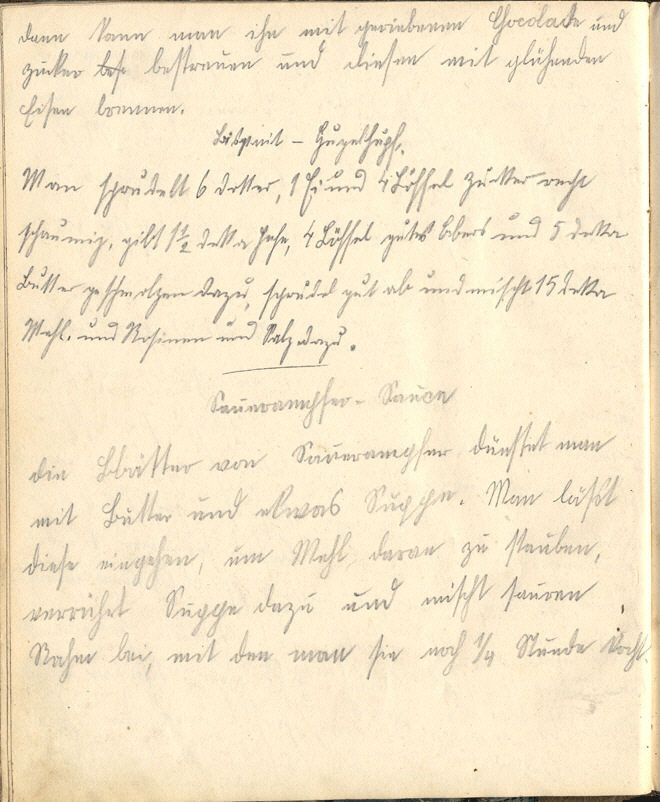 dann kann man ihn mit geriebenen Chocolade und
Zucker bestreuen und diesen mit glühenden
Eisen brennen.
Bisquit – Gugelhupf.
Man sprudelt 6 Dotter, 1 Ei und 4 Löffel Zucker recht
schaumig, gibt 1 1/2 dekka Hefe, 4 Löffel gutes Obers und 5 dekka
Butter geschmolzen dazu, sprudel gut ab und mischt 15 dekka
Mehl, und Rosinen und Salz dazu.
Sauerampfer – Sauce
die Blätter von Sauerampfer dünstet man
mit Butter und etwas Suppe. Man läßt
diese eingehen, um Mehl daran zu stauben,
verrührt Suppe dazu und mischt sauren
Rahm bei, mit den man sie noch 1/4 Stunde kocht.